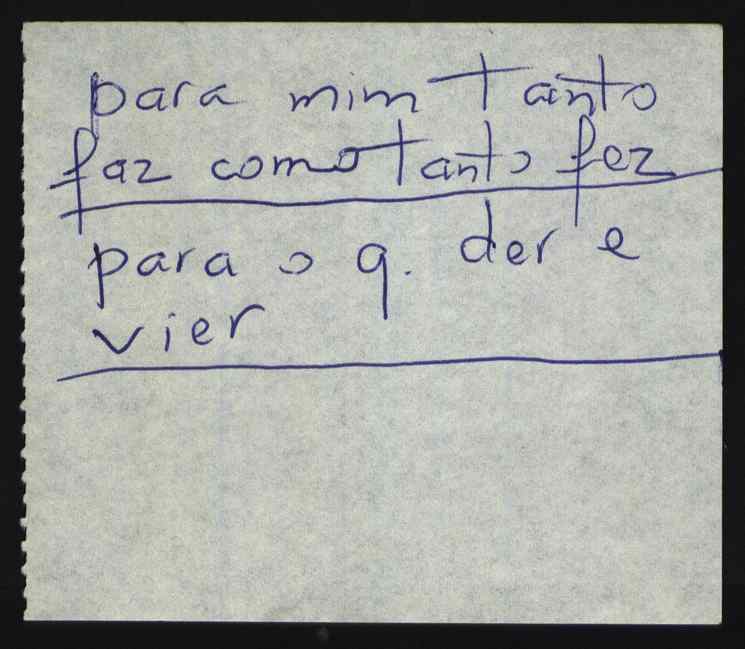 para mim tanto
faz como tanto fez
para o q. der e
vier